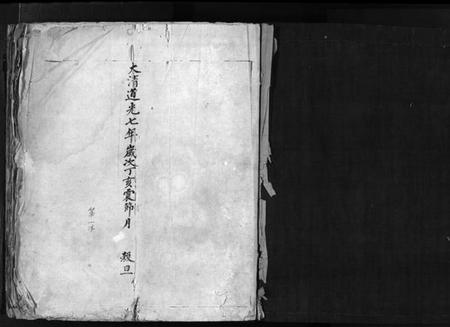 大清道光七年歲次丁亥震節月 穀旦
第一本